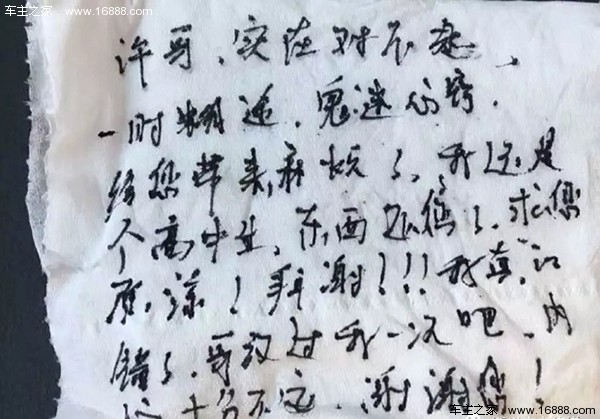 车主之家 www.16888.com
车主之家 www.16888.com
许哥,实在对不起,
一时糊途,鬼迷心窍.
给您带来麻烦了,我还是
个高中生,东西还您了,求您
原谅!拜谢!!!我真认
错了,哥放过我一次吧,内
心十分不安,谢谢您!
车主之家 www.16888.com
车主之家 www.16888.com